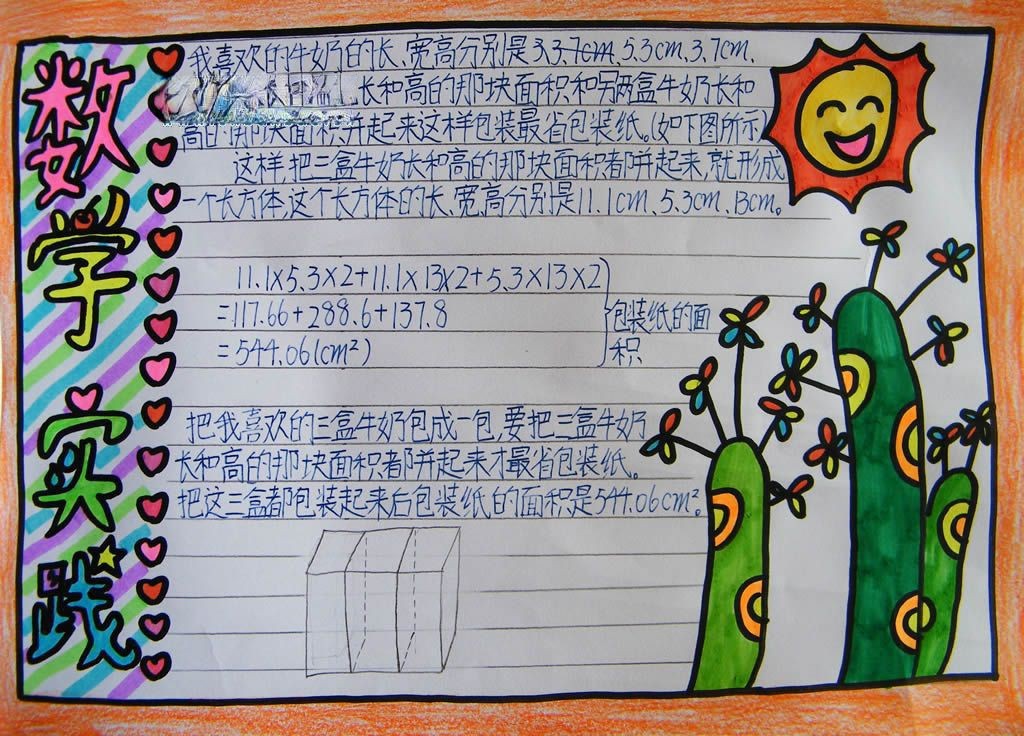 数学实践
我喜欢的牛奶的长、宽高分别是3.3.7cm、5.3cm、3.7cm、
长和高的那块面积和另两盒牛奶长和
高的那块面积并起来这样包装最省包装纸。(如下图所示)
这样把三盒牛奶长和高的那块面积都并起来,就形成
一个长方体,这个长方体的长、宽、高分别是11.1cm、5.3cm、13cm。
11.1×5.3×2+11.1×13×2+5.3×13×2
=117.66+288.6+137.8
=544.06(cm²)
包装纸的面
积
把我喜欢的三盒牛奶包成一包,要把三盒牛奶
长和高的那块面积都并起来才最省包装纸。
把这三盒都包装起来后包装纸的面积是544.06cm²。